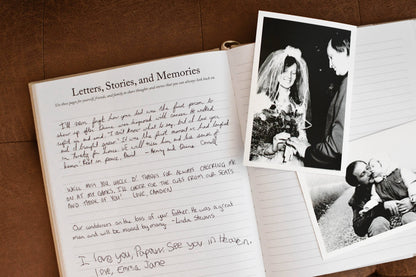 Letters, Stories, and Memories
Use these pages for yourself, friends, and family to share thoughts and stories that you can always look back on.
I'll never forget how your dad was the first person to
show up after Elaine was diagnosed with cancer. He walked
right in and said, "I don't know what to say, but I love you
and I brought pizza." It was the first moment we had laughed
in
hours. I will miss him and his sense of
humor. Rest in peace, Brad. - Henry and Elaine Correll
WE'LL MISS YOU UNCLE D! THANKS FOR ALWAYS CHEERING ME
ON AT MY GAMES. I'LL CHEER FOR THE CUBS FROM OUR SEATS
AND THINK OF YOU! LOVE, CAMDEN
Our condolences on the loss of your father. He was a great
man and will be missed by many. -Linda Stevens
I love you, Papaw. See you in Heaven.
Love, Emma Jane